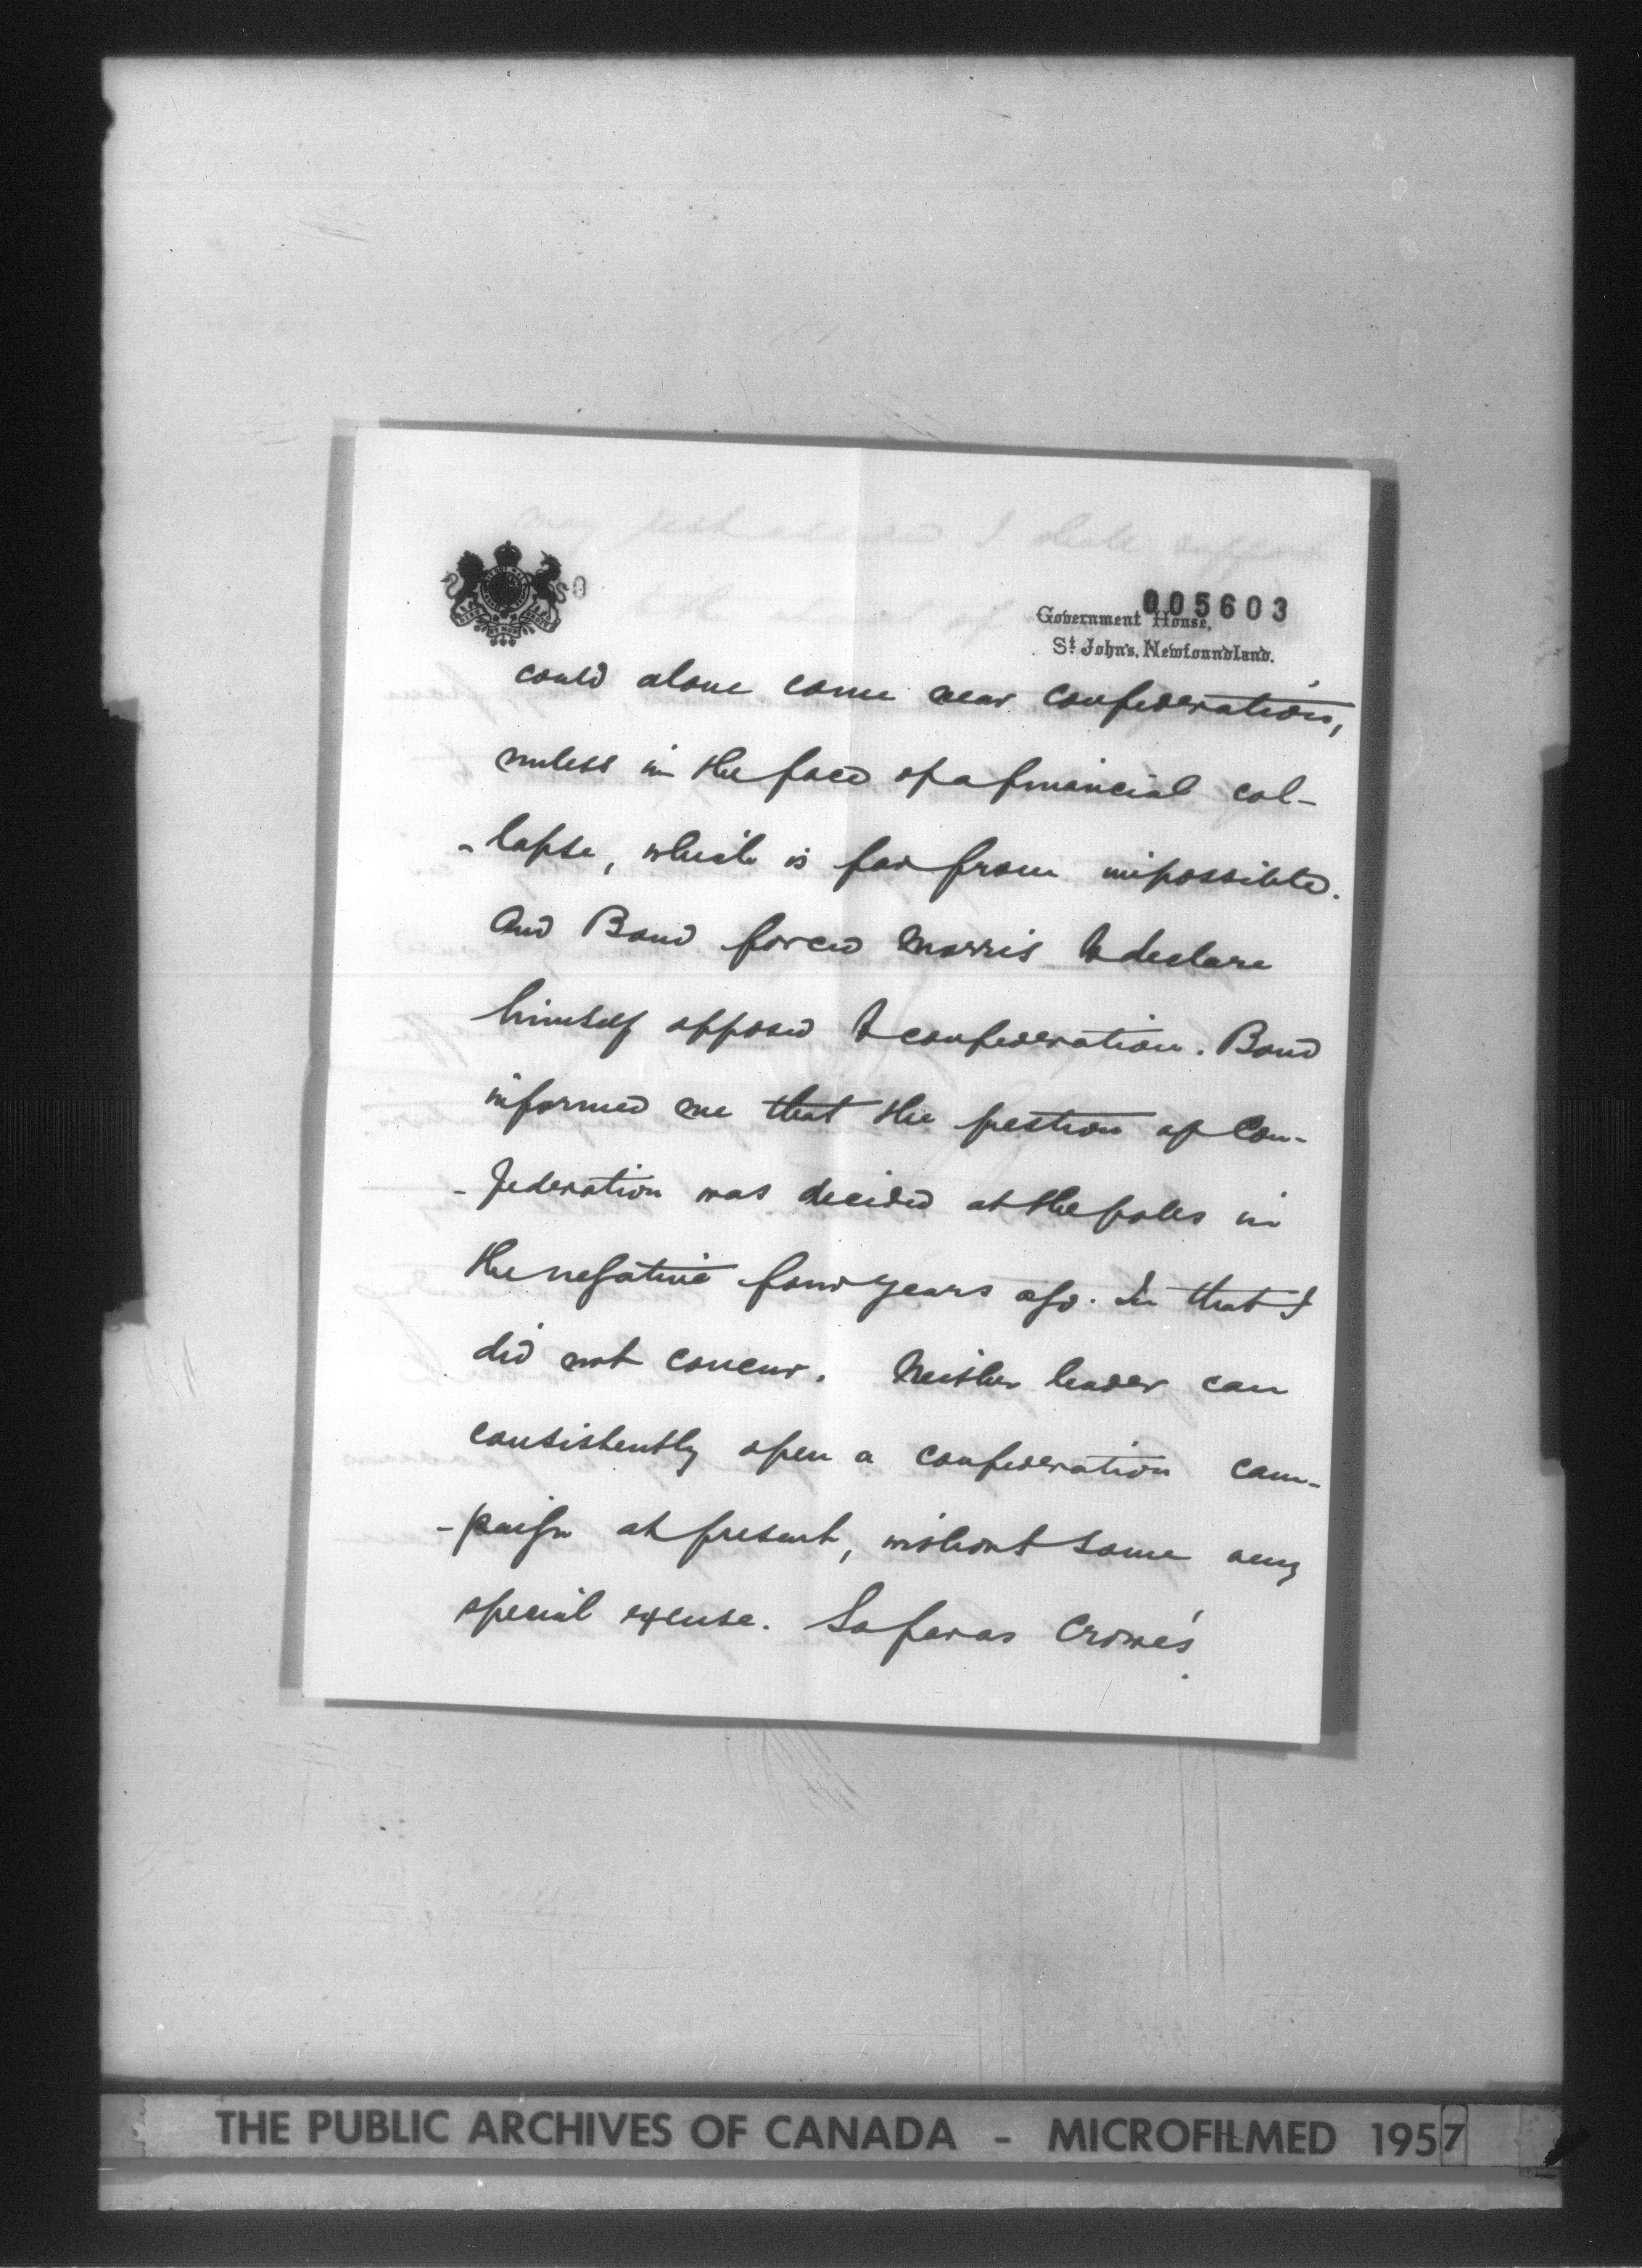 005603
Government House,
St. John's, Newfoundland.
could alone come near confederation,
unless in the face of a financial col-
-lapse, which is far from impossible.
And Bond forced Morris to declare
himself opposed to confederation. Bond
informed me that the question of Con-
-federation was decided at the poles in
the negative four years ago. In that I
did not concur. Neither leader can
consistently open a confederation cam-
-paign at present, without some very
special excuse. So far as Crowe's
THE PUBLIC ARCHIVES OF CANADA - MICROFILMED 1957